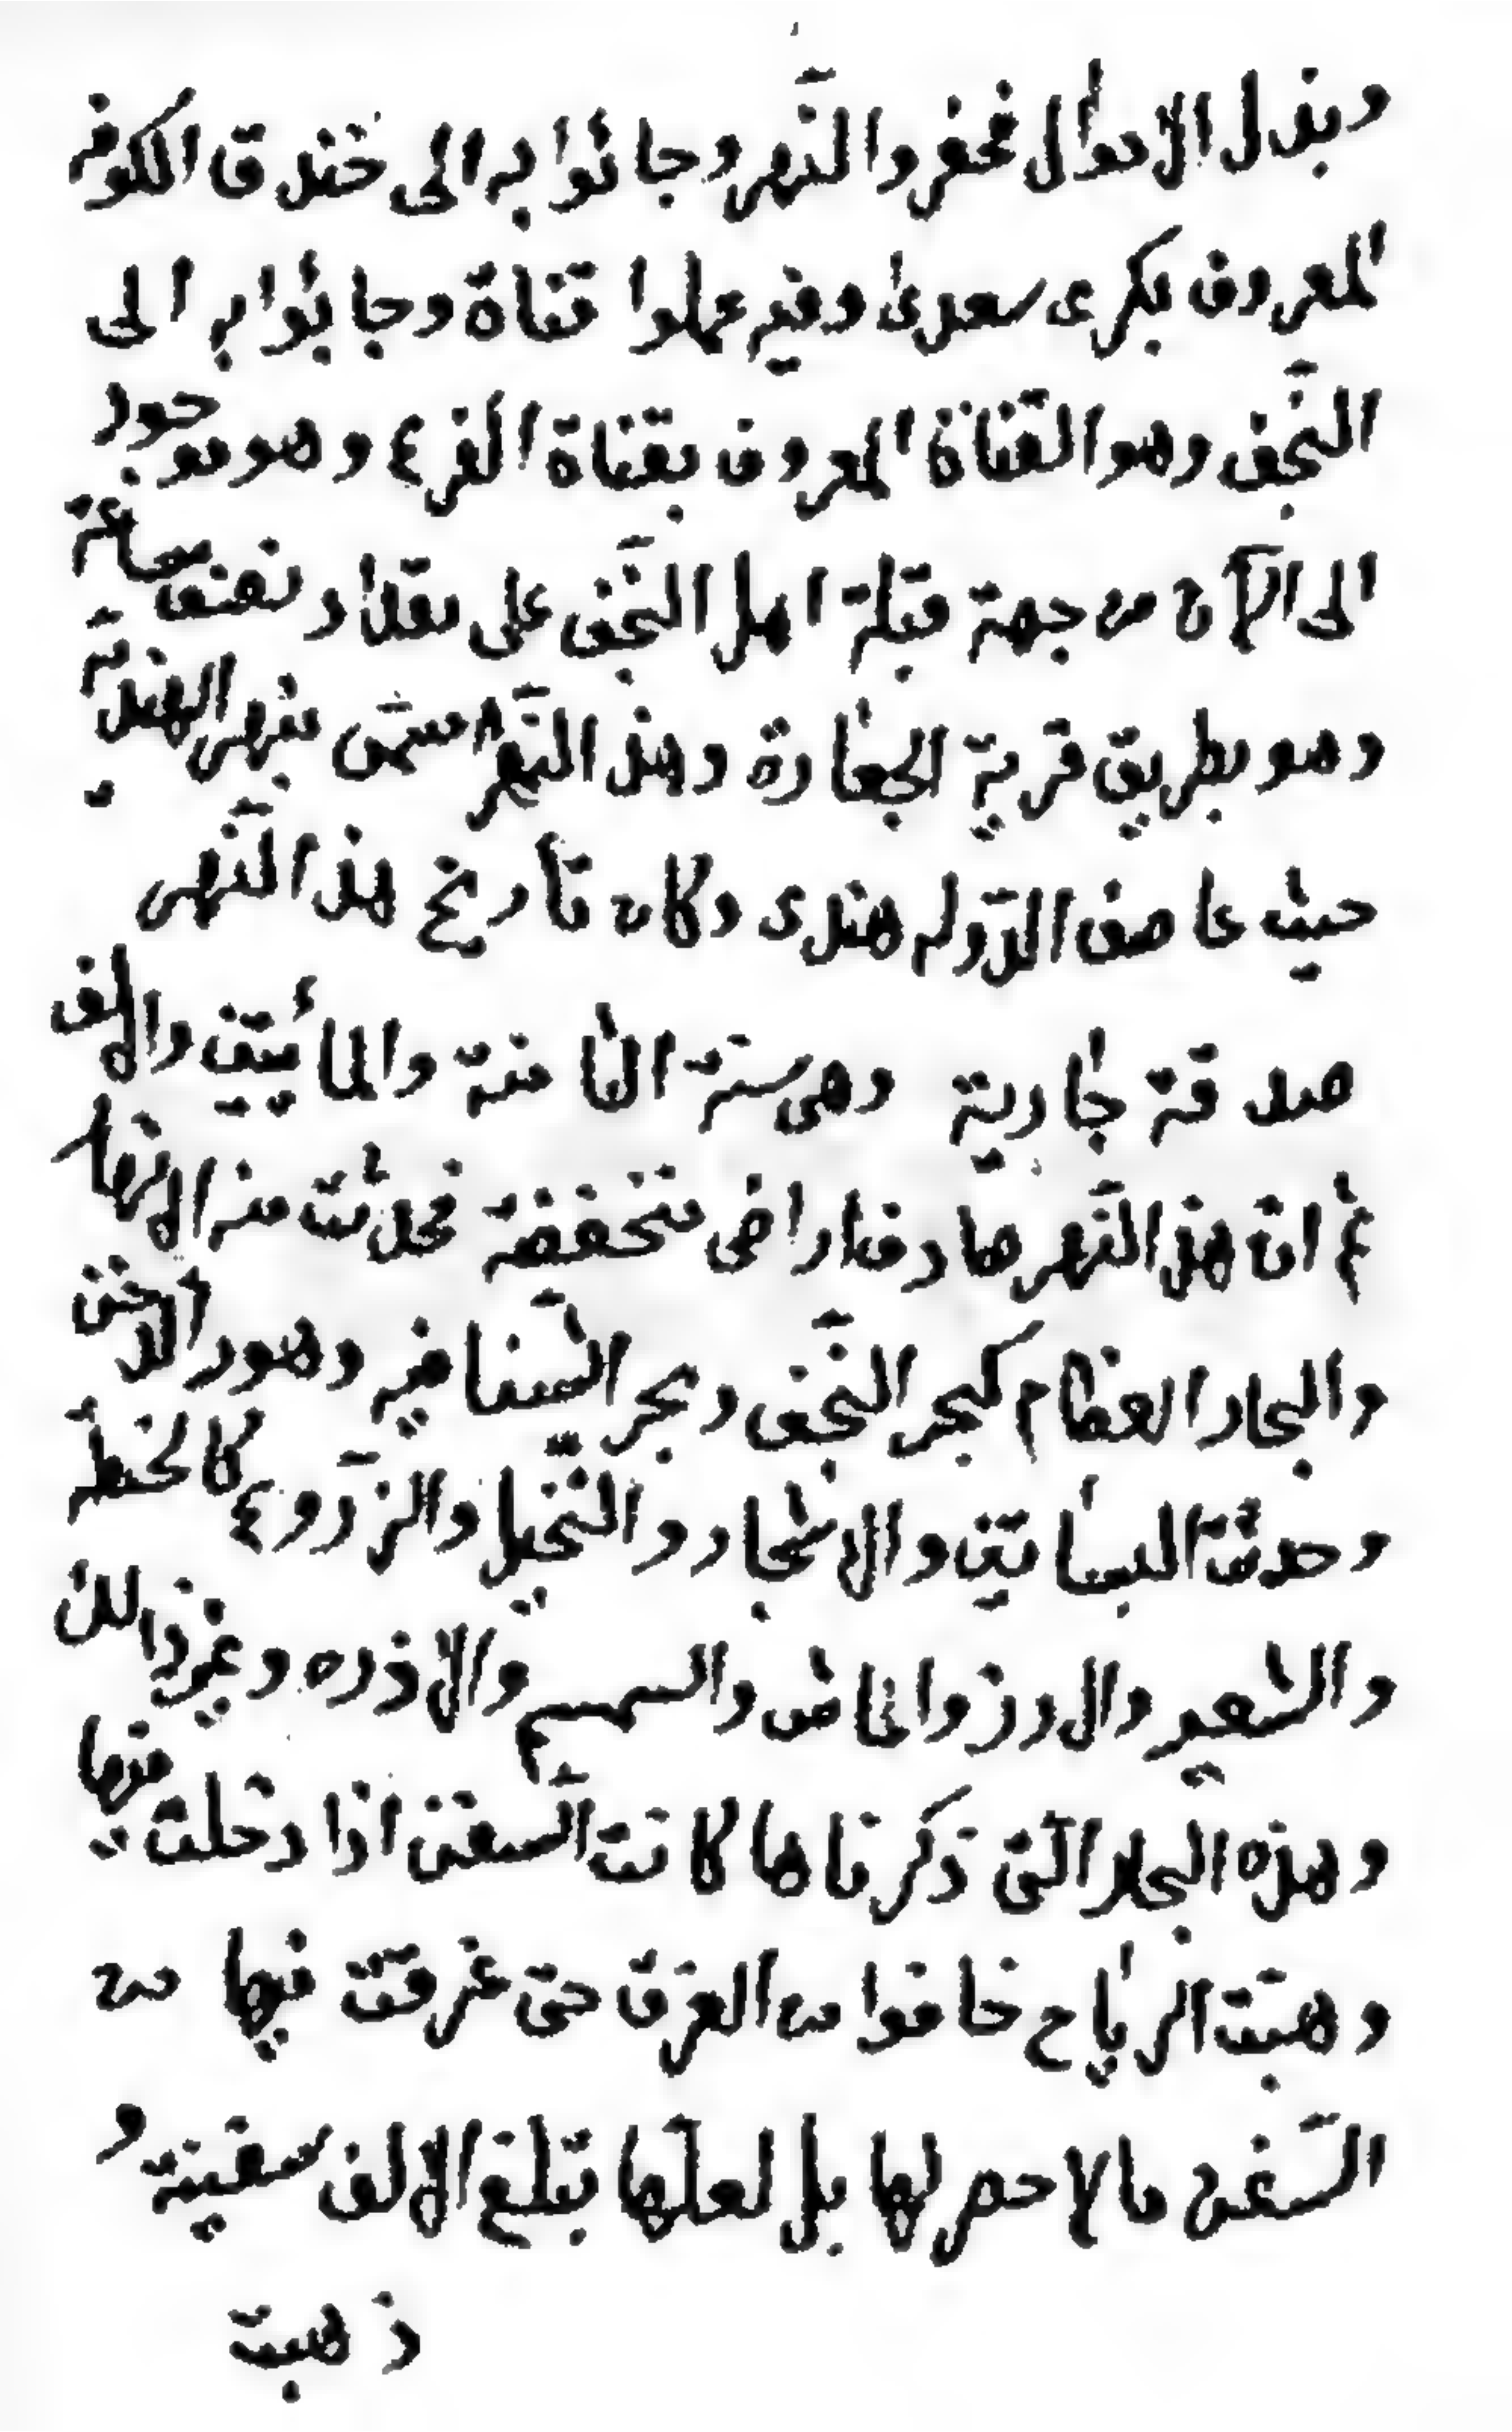 وبذل الاموال فحفروا النَّهر وجائوا به الى خندق الكوفه
المعروف بكرى سعدى وفيه عملوا قناة وجائوا به الى
النَّجف وهو القناة المعروف بقناة الفرع وهو موجود
الى الآن من جهة قبلة اهل النَّجف على مقدار نصف ساعة
وهو بطريق قرية الجعارة وهذا النَّهر مسمّى بنهر الهنديّة
حيث عاصف الدّوله هندى وكان تأريخ هذا النَّهر
صدقة جارية وهى سنة الثامنة والمأيتين والالف
ثم انّ هذا النَّهر صادف اراضى منخفضة فحدثت منه الانهار
والبحار العظام كبحر النَّجف وبحر الشّنافيه وهور الدخن
وحدثت البساتين والاشجار والنَّخيل والزّروع كالحنطه
والشعير والارز والماش والسمسم والاذره وغير ذالك
وهذه البحار الّتى ذكرناها كانت السّفن اذا دخلت فيها
وهبّت الرياح خافوا من الغرق حتى غرقت فيها من
السّفن مالا حصر لها بل لعلّها تبلغ الالف سفينة و
ذهبت